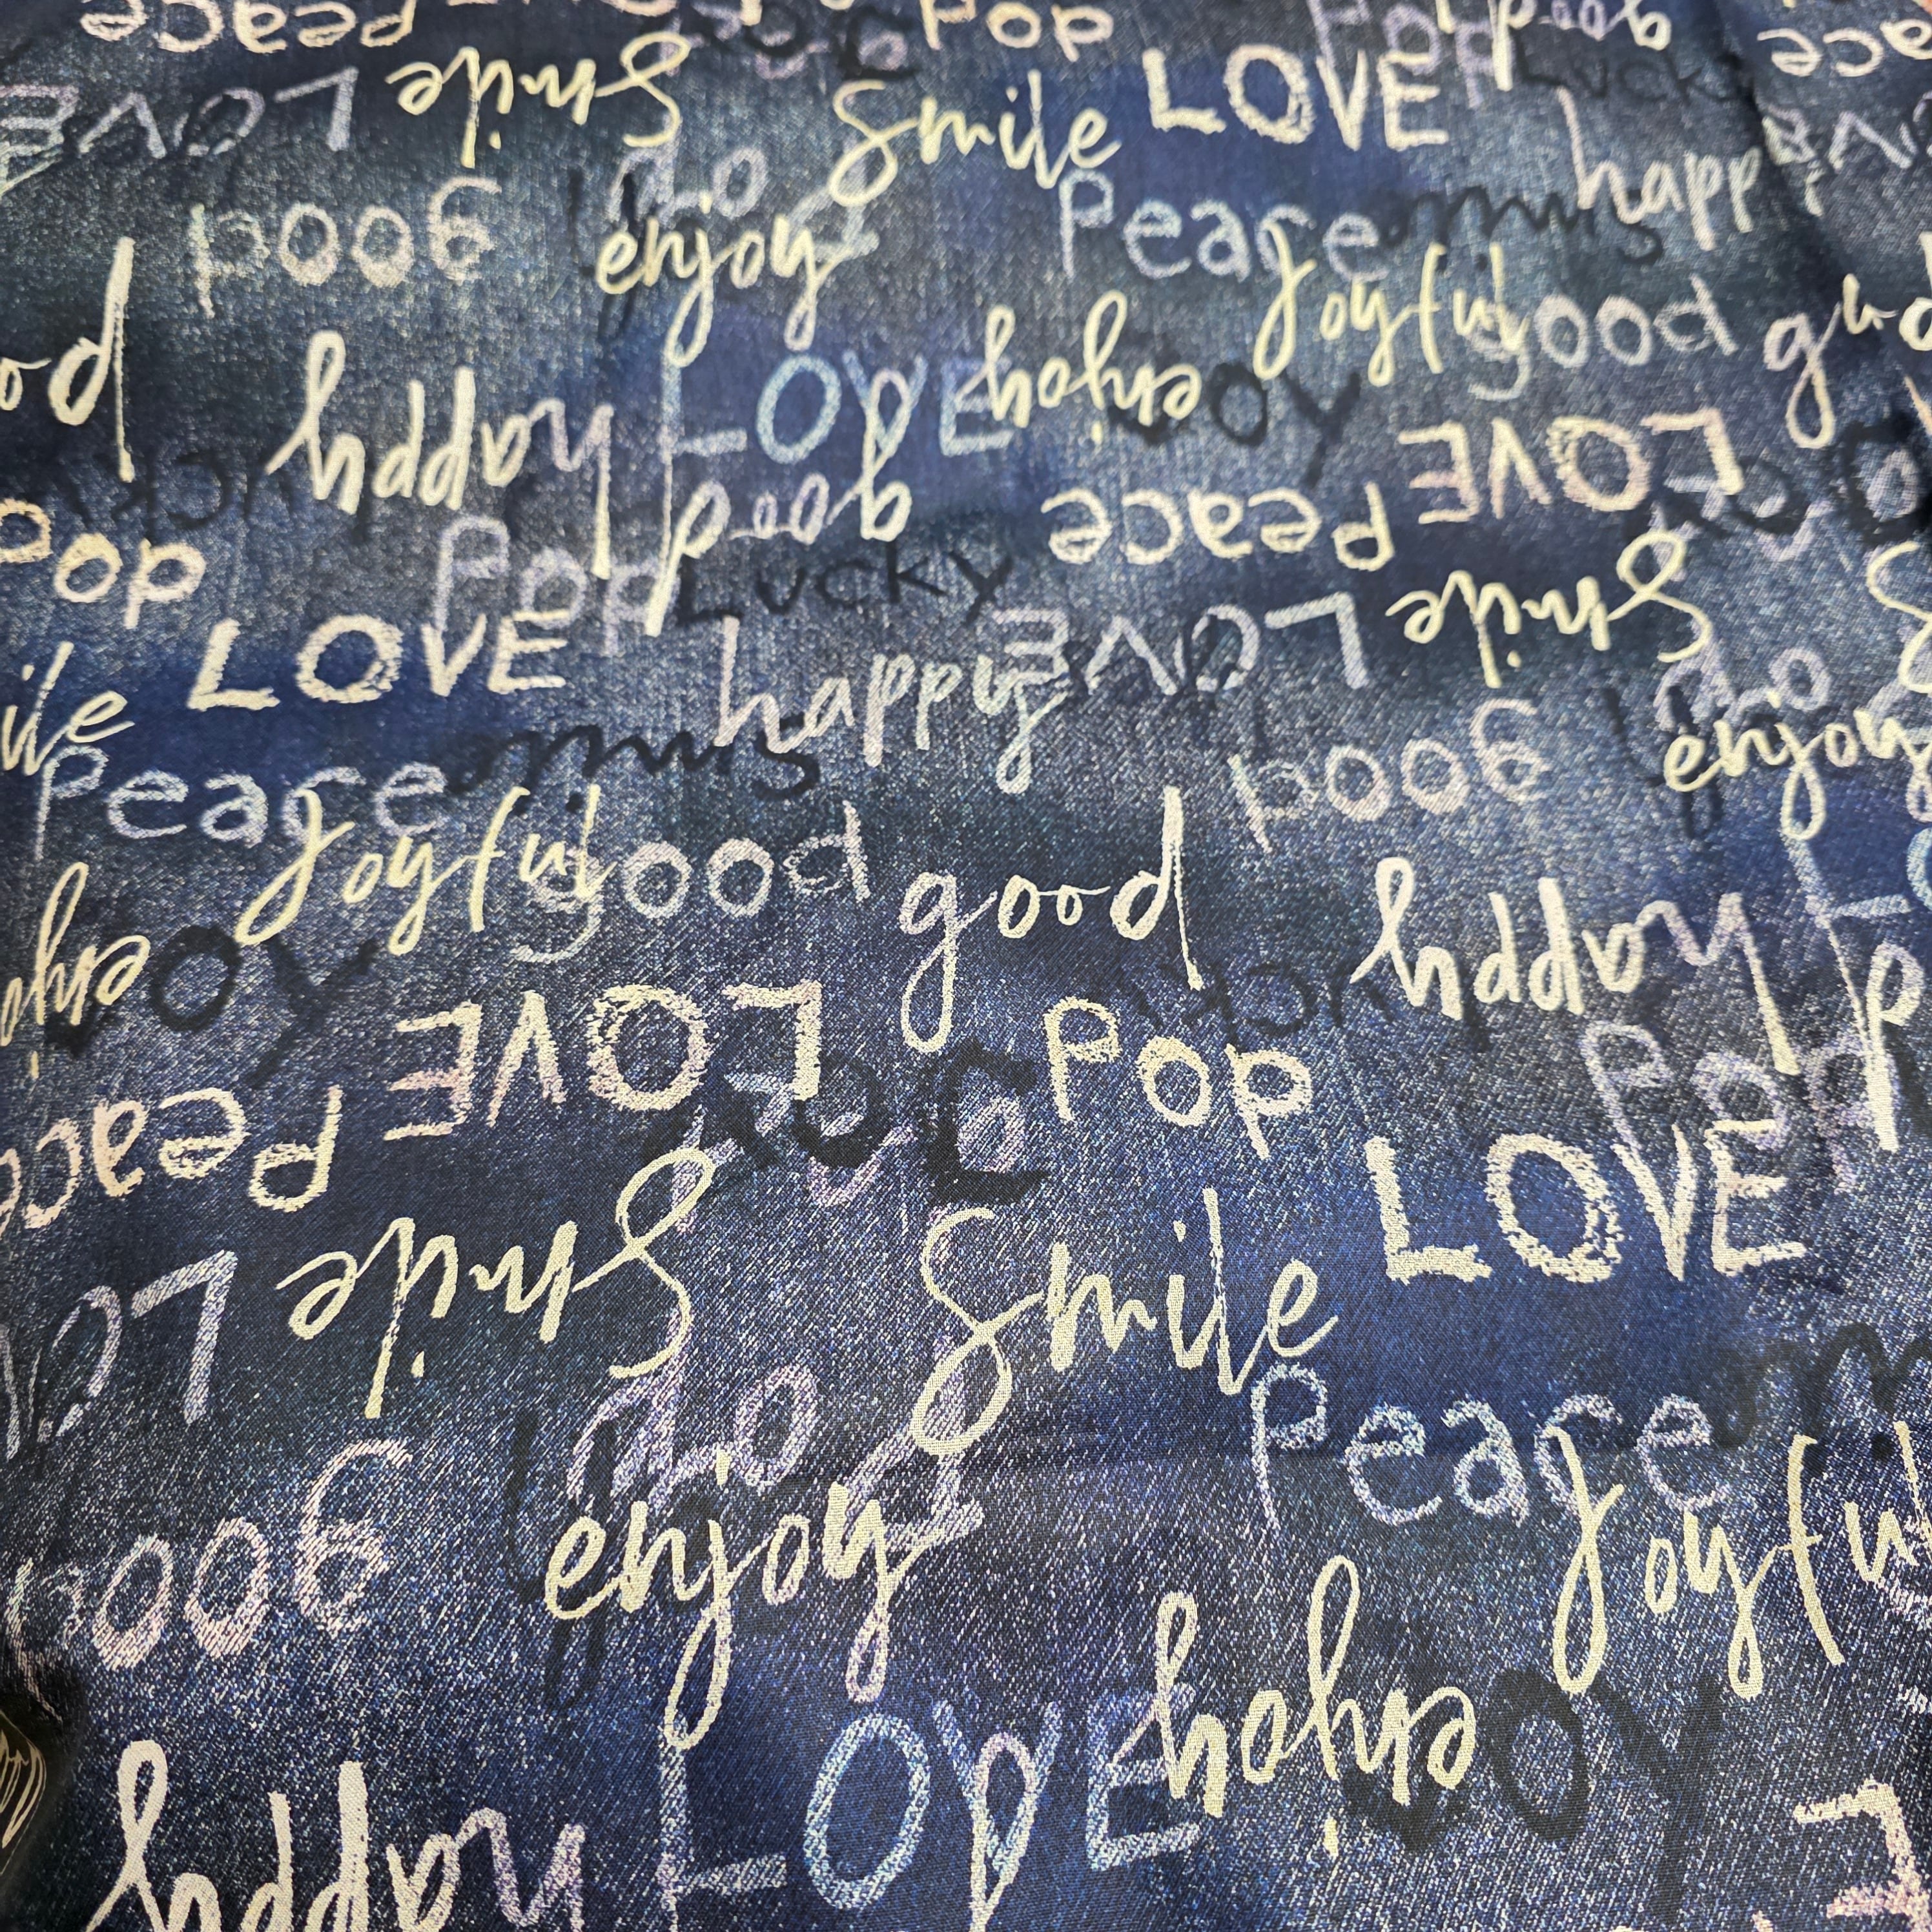 Peace Pop Pop good Peace
LOVE Smile Smile LOVE Lucky
good enjoy Peace happy LOVE
good happy LOVE enjoy Joy Joyful good good
Pop Pop good Lucky Peace LOVE
Smile LOVE happy LOVE Smile
Peace good enjoy
Joyful good good happy
enjoy Joy LOVE Pop Pop
Peace Joy LOVE
LOVE Smile Smile
good enjoy Peace Joyful
happy LOVE enjoy Joy